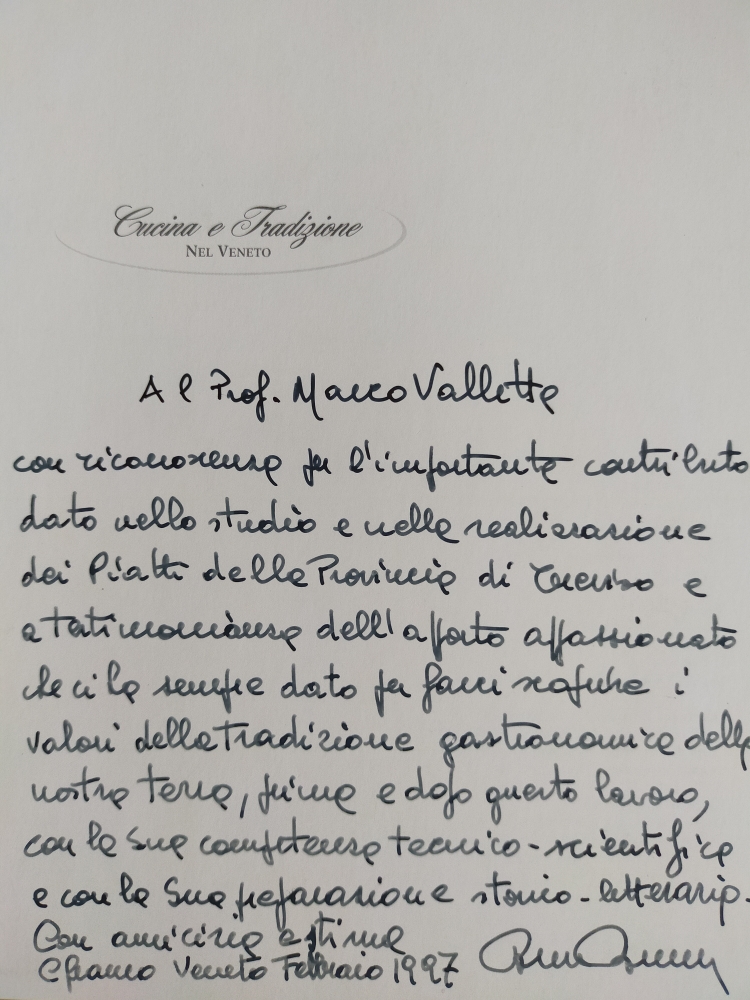 Cucina e Tradizione
NEL VENETO
Al Prof. Marco Valletta
con riconoscenza per l'importante contributo
dato nello studio e nella realizzazione
dei Piatti della Provincia di Treviso e
a testimonianza dell'apporto appassionato
che ci ha sempre dato per farci scoprire i
valori della tradizione gastronomica della
nostra terra, prima e dopo questo lavoro,
con la Sua competenza tecnico-scientifica
e con la Sua preparazione storico-letteraria.
Con amicizia e stima
C franco Veneto Febbraio 1997